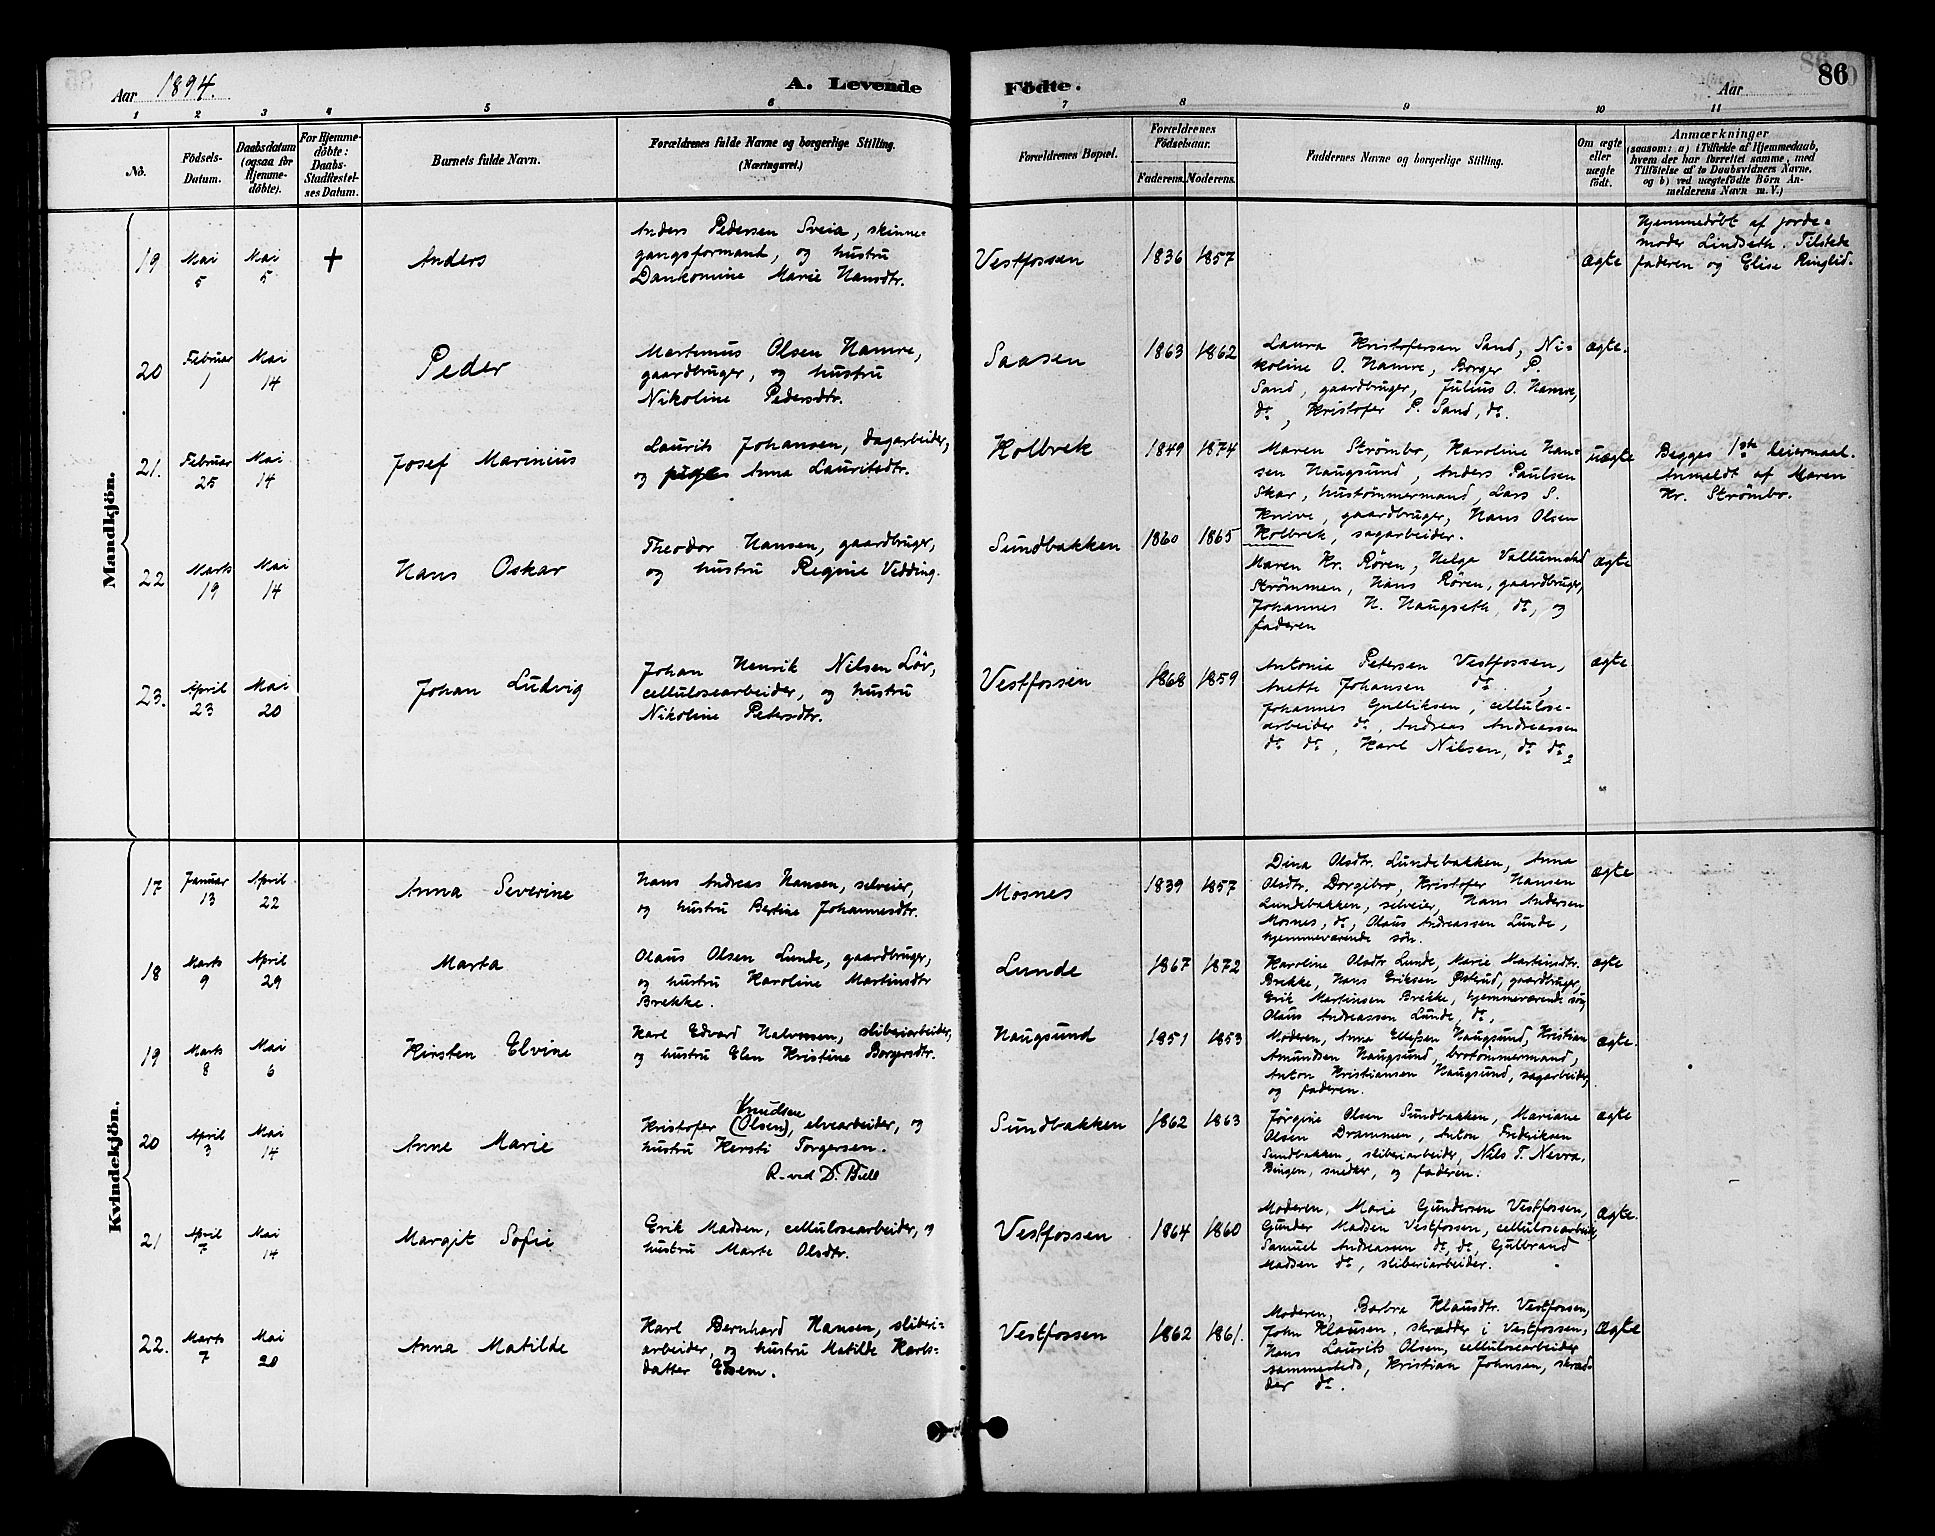 Aar 1894.
A. Levende
Födte.
Aar
86
1 2 3 4 5 6 7 8 9 10 11
No.
Födsels-Datum.
Daabsdatum (ogsaa for Hjemme-döbte).
For Hjemme-döbte: Daabs-Stadfæstel-ses Datum.
Barnets fulde Navn.
Forældrenes fulde Navne og borgerlige Stilling.
(Næringsvei.)
Forældrenes Bopæl.
Forældrenes Födselsaar.
Faderens. Moderens.
Faddernes Navne og borgerlige Stilling.
Om ægte eller uægte födt.
Anmærkninger
(saasom: a) i Tilfælde af Hjemmedaab, hvem der har forrettet samme, med Tilföielse af to Daabsvidners Navne, og b) ved uægtefödte Börn Anmelderens Navn m. V.)
Mandkjön.
19 Mai 5 Mai 5 + Anders
Anders Pedersen Sveia, skinne-
gangsformand, og hustru
Dankomine Marie Hansdtr.
Vestfossen 1836 1857 Ægte
Hjemmedöbt af jorde-
moder Lindseth. Tilstede
faderen og Elise Ringlid.
20 Februar 1 Mai 14 Peder
Martinius Olsen Hamre,
gaardbruger, og hustru
Nikoline Pedersdtr.
Saasen 1863 1862
Laura Kristofersen Sand, Ni-
koline O. Hamre, Borger P.
Sand, gaardbruger, Julius O. Hamre,
do, Kristofer P. Sand, do.
Ægte.
21. Februar 25 Mai 14 Josef Marinius
Laurits Johansen, dagarbeider,
og pige Anna Lauritsdtr.
Holbræk 1849 1874
Maren Strömbo, Karoline Han-
sen Haugsund, Anders Paulsen
Skar, hustömmermand, Lars S.
Knive, gaardbruger, Hans Olsen
Holbræk, sagarbeider.
uægte
Begges 1ste leiermaal.
Anmeldt af Maren
Kr. Strömbo.
22 Marts 19 Mai 14 Hans Oskar
Theodor Hansen, gaardbruger,
og hustru Regine Vedding.
Sundbakken 1860 1865
Maren Kr. Rören, Helga
Strömmen, Hans Rören, gaardbruger,
Johannes H. Haugseth, do, og
faderen
Ægte
23. April 23 Mai 20 Johan Ludvig
Johan Henrik Nilsen Löv,
cellulosearbeider, og hustru
Nikoline Petersdtr.
Vestfossen 1868 1859
Antonia Petersen Vestfossen,
Anette Johansen do,
Johannes Gulliksen, cellulose-
arbeider do, Andreas Andreassen
do do, Karl Nilsen, do do
Ægte
Kvindekjön.
17 Januar 13 April 22 Anna Severine
Hans Andreas Hansen, selveier,
og hustru Bertine Johannesdtr.
Mosnes 1839 1857
Dina Olsdtr. Lundebakken, Anna
Olsdtr. Dorgibro, Kristofer Hansen
Lundebakken, selveier, Hans Andersen
Mosnes, do, Olaus Andreassen Lunde,
hjemmeværende sön.
Ægte
18 Marts 9 April 29 Marta
Olaus Olsen Lunde, gaardbruger,
og hustru Karoline Martinsdtr
Brekke.
Lunde 1867 1872
Karoline Olsdtr Lunde, Marie Martinsdtr.
Brekke, Hans Eriksen, gaardbruger,
Erik Martinsen Brekke, hjemmeværende sön,
Olaus Andreassen Lunde, do.
Ægte
19 Marts 8 Mai 6 Kirsten Elvine
Karl Edvard Halvorsen, sliberiarbeider,
og hustru Elen Kristine Borgersdtr.
Haugsund 1851 1853
Moderen, Anna Ellefsen Haugsund, Kristian
Amundsen Haugsund, brotömmermand,
Anton Kristiansen Haugsund, sagarbeider,
og faderen.
Ægte.
20 April 3 Mai 14 Anne Marie
Knudsen
Kristofer (Olsen), elvearbeider, og
hustru Kersti Torgersen.
R. ved D. Bull
Sundbakken 1862 1863
Jörgine Olsen Sundbakken, Mariane
Olsen Drammen, Anton Fredriksen
Sundbakken, sliberiarbeider, Nils T. Nevra,
Bingen, snedker, og faderen.
Ægte
21 April 7 Mai 14 Margit Sofie
Erik Madsen, cellulosearbeider, og
hustru Marte Olsdtr.
Vestfossen 1864 1860
Moderen, Marie Gundersen Vestfossen,
Gunder Madsen Vestfossen, cellulosearbeider,
Samuel Andreassen do, do, Gulbrand
Madsen do, sliberiarbeider.
Ægte.
22. Marts 7 Mai 20 Anna Matilde
Karl Bernhard Hansen, sliberi-
arbeider, og hustru Matilde Karls-
datter
Vestfossen 1862 1861.
Moderen, Barbra Klausdtr. Vestfossen,
John Klausen, skrædder i Vestfossen,
Hans Laurits Olsen, cellulosearbeider
sammesteds, Kristian Johnsen, skræd-
der do.
Ægte